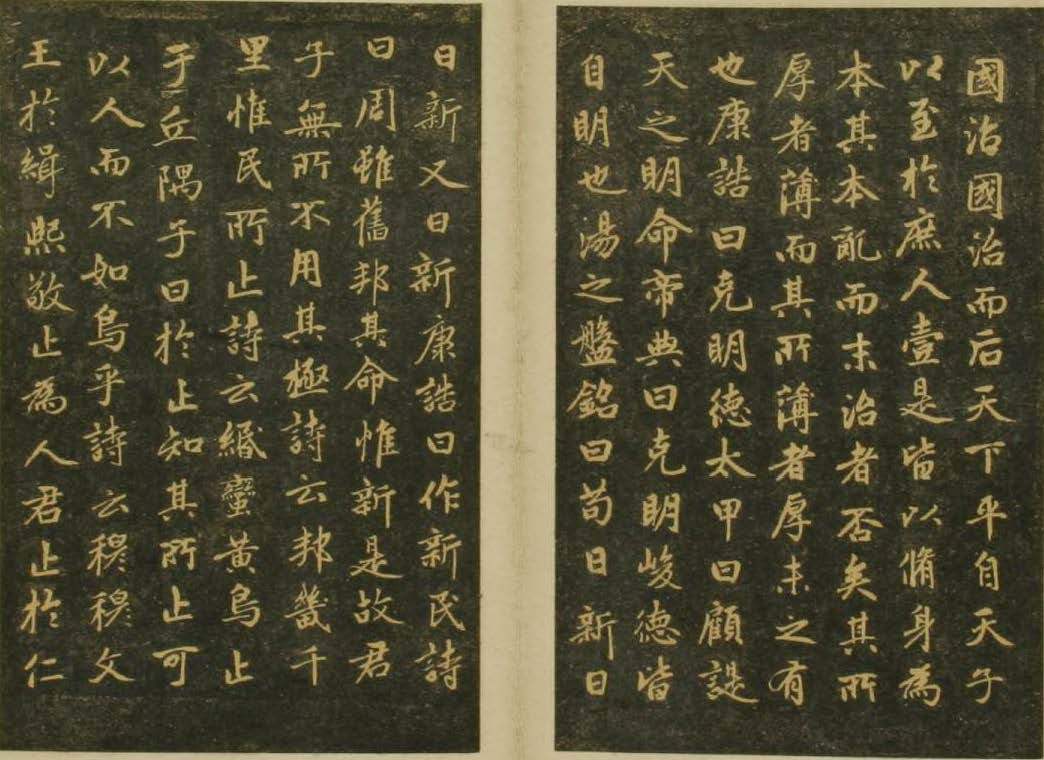 國治國治而后天下平自天子
以至於庶人壹是皆以脩身為
本其本亂而末治者否矣其所
厚者薄而其所薄者厚未之有
也康誥曰克明德太甲曰顧諟
天之明命帝典曰克明峻德皆
自明也湯之盤銘曰苟日新日
日新又日新康誥曰作新民詩
曰周雖舊邦其命惟新是故君
子無所不用其極詩云邦畿千
里惟民所止詩云緡蠻黃鳥止
于丘隅子曰於止知其所止可
以人而不如鳥乎詩云穆穆文
王於緝熙敬止為人君止於仁